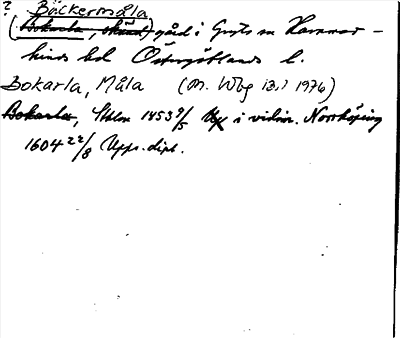 ? Bäckermåla
(Bokarla, skänn) gård i Gryts sn Hammar-
kinds hd Östergötlands l.
Bokarla, Måla (M. Wbg 13.1 1976)
Bokarla, Sthlm 1453 9/5 Up i vidim. Norrköping
1604 22/8 Upps. dipl.